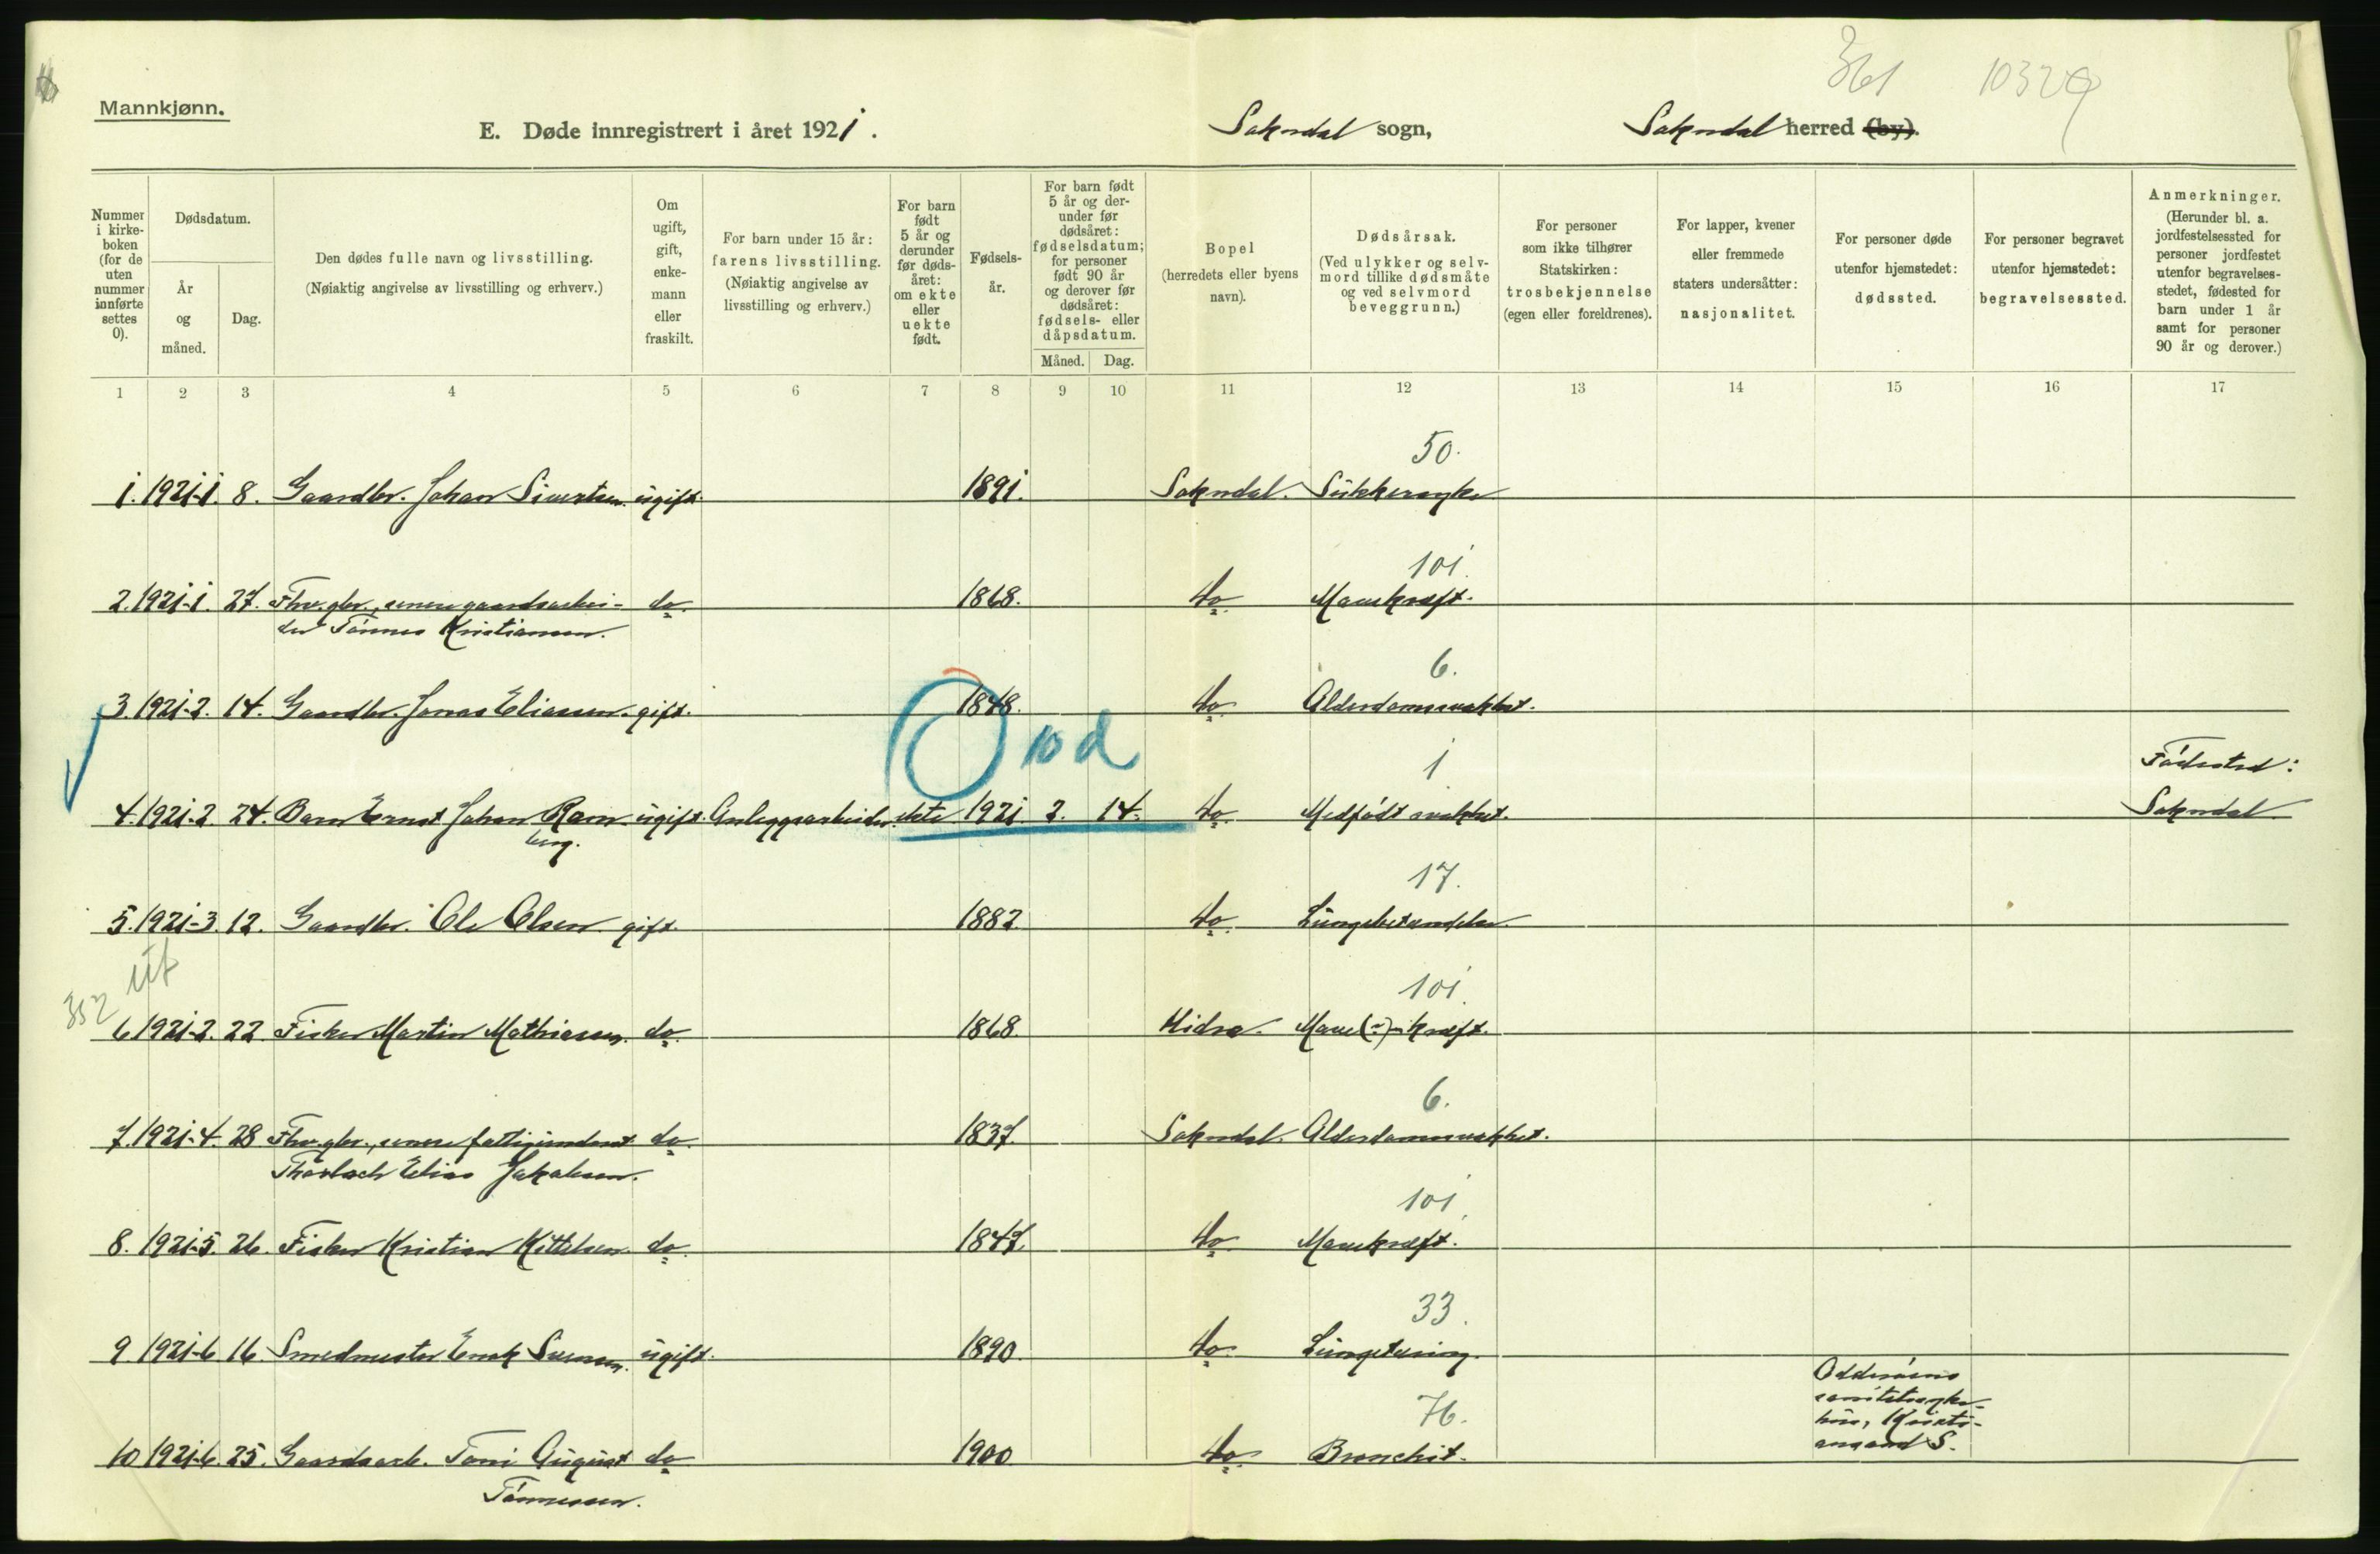 361 10329
Mannkjønn.
E. Døde innregistrert i året 1921. Sokndal sogn, Sokndal herred (by).
Nummer i kirke-boken (for de uten nummer innførte settes 0).
Dødsdatum.
År og måned.
Dag.
Den dødes fulle navn og livsstilling.
(Nøiaktig angivelse av livsstilling og erhverv.)
Om ugift, gift, enke-mann eller fraskilt.
For barn under 15 år: farens livsstilling.
(Nøiaktig angivelse av livsstilling og erhverv.)
For barn født 5 år og derunder før døds-året: om ekte eller uekte født.
Fødsels-år.
For barn født 5 år og der-under før dødsåret: fødselsdatum; for personer født 90 år og derover før dødsåret: fødsels- eller dåpsdatum.
Måned. Dag.
Bopel
(herredets eller byens navn).
Dødsårsak.
(Ved ulykker og selv-mord tillike dødsmåte og ved selvmord beveggrunn.)
For personer som ikke tilhører Statskirken: trosbekjennelse (egen eller foreldrenes).
For lapper, kvener eller fremmede staters undersåtter: nasjonalitet.
For personer døde utenfor hjemstedet: dødssted.
For personer begravet utenfor hjemstedet: begravelsessted.
Anmerkninger.
(Herunder bl. a. jordfestelsessted for personer jordfestet utenfor begravelses-stedet, fødested for barn under 1 år samt for personer 90 år og derover.)
1 2 3 4 5 6 7 8 9 10 11 12 13 14 15 16 17
50.
1. 1921-1. 8. Gaardbr. Johan Sivertsen. ugift. 1891. Sokndal. Sukkersyke
101.
2. 1921-1. 27. Fhv. gbr., senere gaardsarbei- do. 1868. do. Mavekræft.
der Tönnes Kristiansen.
6.
3. 1921-2. 14. Gaardbr. Jonas Eliassen. gift. 1848. do. Alderdomssvakhet.
10 d
1 Födested:
4. 1921-2. 24. Barn Ernst Johan Ram- ugift. Anleggsarbeider. ekte 1921. 2. 14. do. Medfödt svakhet. Sokndal.
berg.
17.
5. 1921-3. 12. Gaardbr. Ole Olsen. gift. 1882. do. Lungebetændelse.
ut
352
101.
6. 1921-2. 22. Fisker Martin Mathiassen. do. 1868. Hidra. Mave(?)-kræft.
6.
7. 1921-4. 28. Fhv. gbr., senere fattigunderst. do. 1837. Sokndal. Alderdomssvakhet.
Elias Jakobsen.
101.
8. 1921-5. 26. Fisker Kristian Kittelsen. do. 1847. do. Mavekræft.
33.
9 1921-6 16. Smedmester Enok Svensen. ugift. 1890. do. Lungetæring.
76.
Odderöens
sanitetssyke-
hus, Kristi-
ansand S.
10 1921-6. 25. Gaardsarb. Toni August do. 1900 do. Bronchit.
Tönnessen.